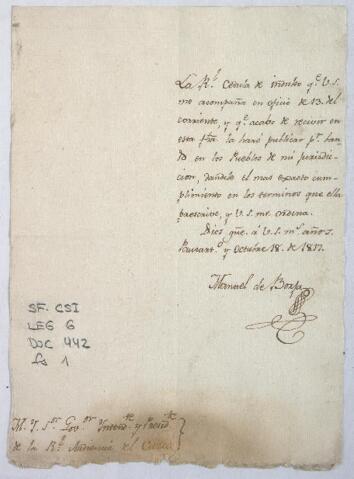 La Rl. Cedula de indulto qe. V.S.
me acompaña en oficio de 13. del
corriente, y qe. acabo de recivir en
esta fha. la haré publicar pr. ban-
do en los Pueblos de mi jurisdic-
cion, dandole el mas exacto cum-
plimiento en los terminos que ella
prescrive, y V.S. me ordena.
Dios gue. á V.S. ms. años.
y Octubre 18. de 1817.
Manuel de Borja
SF. CSI
LEG 6
DOC 442
fs 1
M. Y. Sor. Govor. Yntendte. y Presidte.
de la Rl. Audiencia del Cuzco